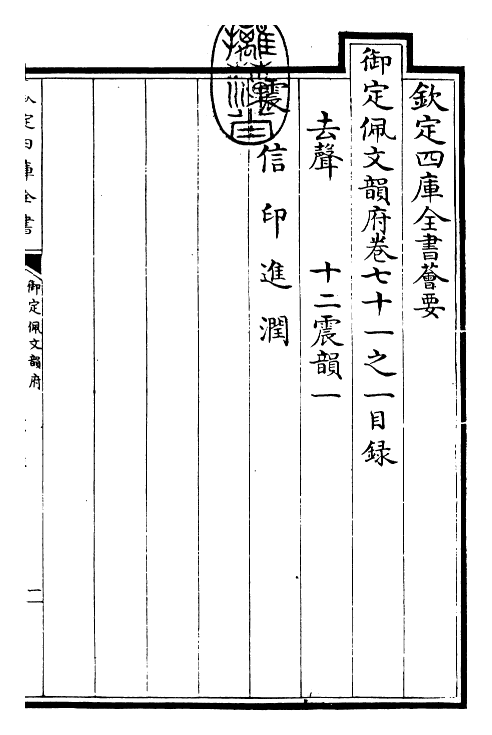 欽定四庫全書薈要
御定佩文韻府卷七十一之一目錄
去聲　十二震韻一
震信印進潤
定四庫全書
御定佩文韻府
一